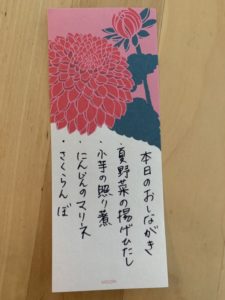 本日のおしながき
・夏野菜の揚げひたし
・小芋の照り煮
・にんじんのマリネ
・さくらんぼ